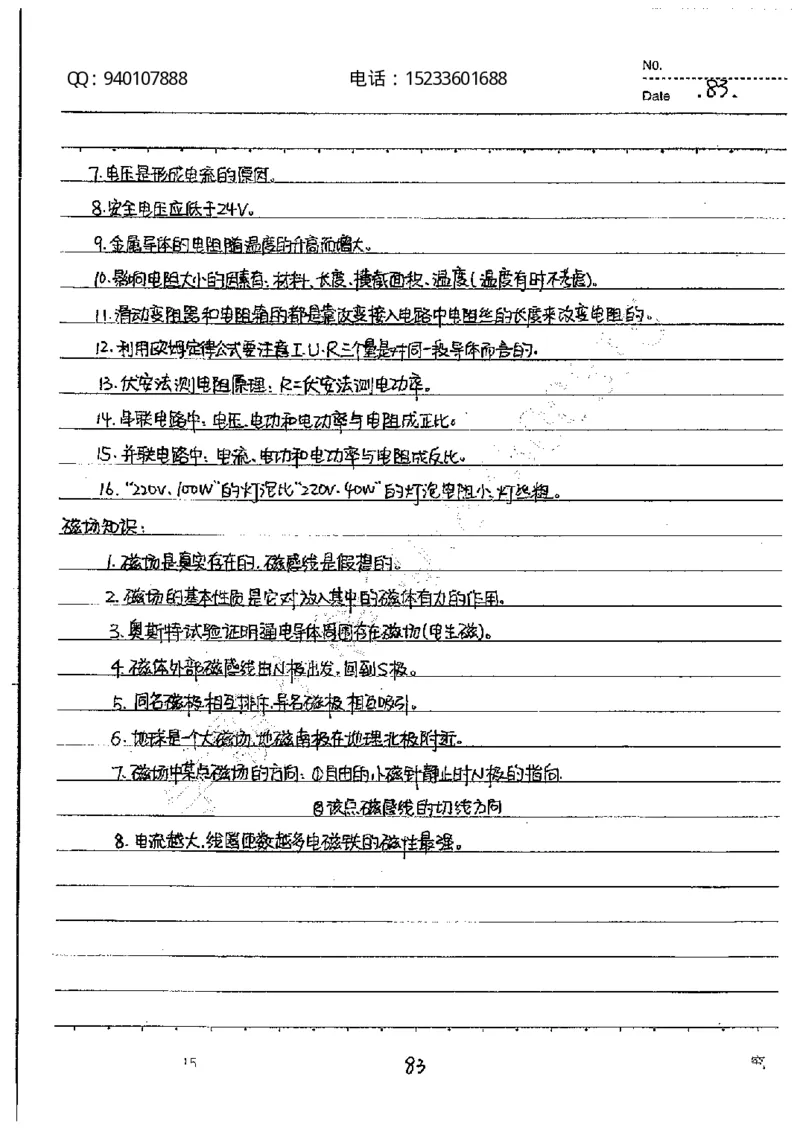 QQ：940107888 电话：15233601688 No.
Date .83.
7.电压是形成电流的原因。
8.安全电压应低于24V。
9.金属导体的电阻随温度的升高而增大。
10.影响电阻大小的因素有:材料、长度、横截面积、温度(温度有时不考虑)。
11.滑动变阻器和电阻箱的都是靠改变接入电路中电阻丝的长度来改变电阻的。
12.利用欧姆定律公式要注意I.U.R三个量是对同一段导体而言的.
13.伏安法测电阻原理:R=伏安法测电功率。
14.串联电路中:电压、电功和电功率与电阻成正比。
15.并联电路中:电流、电功和电功率与电阻成反比。
16."220V、100W"的灯泡比"220V.40W"的灯泡电阻小,灯丝粗。
磁场知识:
1.磁场是真实存在的.磁感线是假想的。
2.磁场的基本性质是它对放入其中的磁体有力的作用。
3.奥斯特试验证明通电导体周围存在磁场(电生磁)。
4.磁体外部磁感线由N极出发,回到S极。
5.同名磁极相互排斥,异名磁极相互吸引。
6.地球是一个大磁场,地磁南极在地理北极附近。
7.磁场中某点磁场的方向:①自由的小磁针静止时N极的指向.
②该点磁感线的切线方向
8.电流越大.线圈匝数越多电磁铁的磁性最强。
15 83